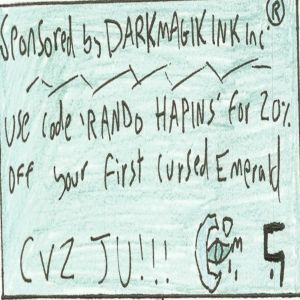 Sponsored by DARKMAGIK INK inc ®
Use code 'RANDO HAPINS' for 20%
OFF your first cursed Emerald
CVZ JU!!!